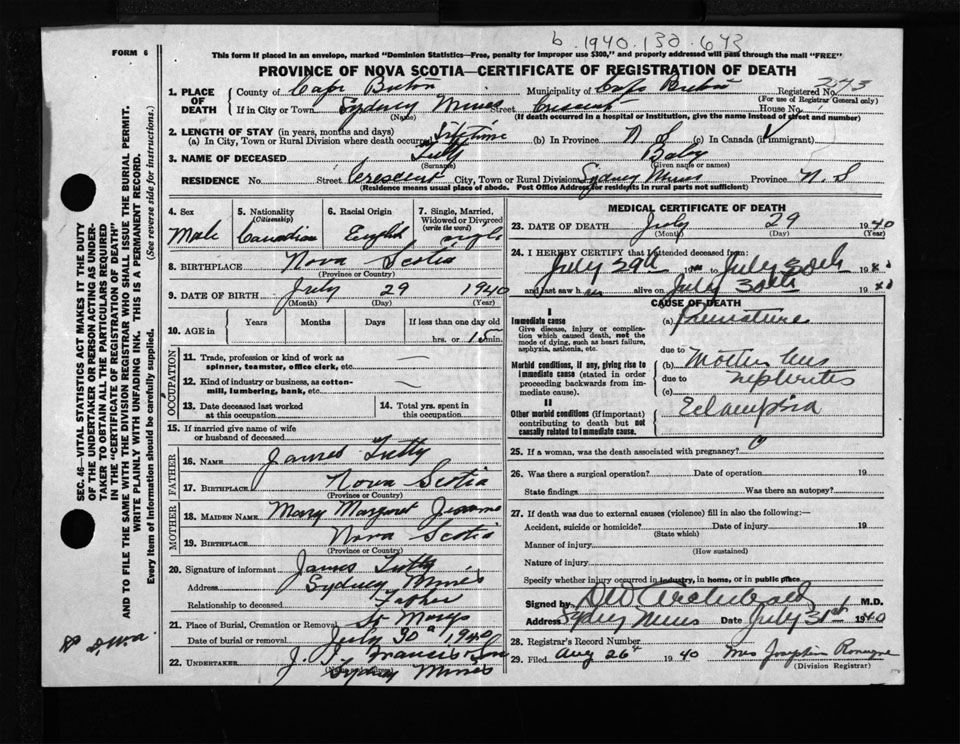 b. 1940. 130. 643
FORM 6
This form if placed in an envelope, marked "Dominion Statistics—Free, penalty for improper use $300," and properly addressed will pass through the mail "FREE"
PROVINCE OF NOVA SCOTIA—CERTIFICATE OF REGISTRATION OF DEATH
1. PLACE OF DEATH County of Cape Breton Municipality of Cape Breton Registered No. 373
(For use of Registrar General only)
If in City or Town Sydney Mines Street Crescent House No.
(Name) (If death occurred in a hospital or institution, give the name instead of street and number)
2. LENGTH OF STAY (in years, months and days)
(a) In City, Town or Rural Division where death occurred Lifetime (b) In Province N S (c) In Canada (if immigrant)
3. NAME OF DECEASED Tutty Baby
(Surname) (Given name or names)
RESIDENCE No. Street Crescent City, Town or Rural Division Sydney Mines Province N. S
(Residence means usual place of abode. Post Office Address for residents in rural parts not sufficient)
4. Sex Male
5. Nationality (Citizenship) Canadian
6. Racial Origin English
7. Single, Married, Widowed or Divorced (write the word) single
8. BIRTHPLACE Nova Scotia
(Province or Country)
9. DATE OF BIRTH July 29 1940
(Month) (Day) (Year)
10. AGE in Years Months Days If less than one day
hrs. or 15 min.
OCCUPATION
11. Trade, profession or kind of work as spinner, teamster, office clerk, etc. —
12. Kind of industry or business, as cotton-mill, lumbering, bank, etc. —
13. Date deceased last worked at this occupation
14. Total yrs. spent in this occupation
15. If married give name of wife or husband of deceased
FATHER
16. NAME James Tutty
17. BIRTHPLACE Nova Scotia
(Province or Country)
MOTHER
18. MAIDEN NAME Mary Margaret
19. BIRTHPLACE Nova Scotia
(Province or Country)
20. Signature of informant James Tutty
Address Sydney Mines
Relationship to deceased Father
21. Place of Burial, Cremation or Removal St Marys
Date of burial or removal July 30 1940
22. UNDERTAKER J. J. Francis & Son
Sydney Mines
MEDICAL CERTIFICATE OF DEATH
23. DATE OF DEATH July 29 1940
(Month) (Day) (Year)
24. I HEREBY CERTIFY that I attended deceased from:
July 29th to July 30th 19
and last saw h alive on July 30th 19
CAUSE OF DEATH
I
Immediate cause (a) Premature
Give disease, injury or complication which caused death, not the mode of dying, such as heart failure, asphyxia, asthenia, etc.
due to
Morbid conditions, if any, giving rise to Immediate cause (stated in order proceeding backwards from immediate cause) (b) Mother has
due to nephritis
(c)
II
Other morbid conditions (if important) contributing to death but not causally related to Immediate cause. Eclampsia
25. If a woman, was the death associated with pregnancy?
26. Was there a surgical operation? Date of operation 19
State findings Was there an autopsy?
27. If death was due to external causes (violence) fill in also the following:—
Accident, suicide or homicide? Date of injury 19
(State which)
Manner of injury
(How sustained)
Nature of injury
Specify whether injury occurred in industry, in home, or in public place
Signed by D W Archibald M.D.
Address Sydney Mines Date July 31st 1940
28. Registrar's Record Number
29. Filed Aug 26th 1940 Mrs Josephine
(Division Registrar)
SEC. 46—VITAL STATISTICS ACT MAKES IT THE DUTY
OF THE UNDERTAKER OR PERSON ACTING AS UNDER-
TAKER TO OBTAIN ALL THE PARTICULARS REQUIRED
IN THE "CERTIFICATE OF REGISTRATION OF DEATH"
AND TO FILE THE SAME WITH THE DIVISION REGISTRAR WHO SHALL ISSUE THE BURIAL PERMIT.
WRITE PLAINLY WITH UNFADING INK. THIS IS A PERMANENT RECORD.
Every item of Information should be carefully supplied. (See reverse side for instructions.)